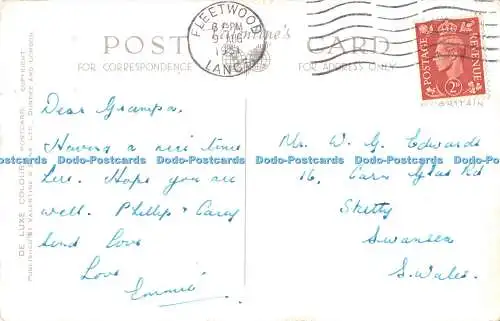 POST CARD
Valentine's
FOR CORRESPONDENCE
FOR ADDRESS ONLY
FLEETWOOD
LANCS
POSTAGE
REVENUE
2D
BRITAIN
DE LUXE COLOUR POSTCARD. COPYRIGHT
PUBLISHED BY VALENTINE & SONS LTD. DUNDEE AND LONDON
Dear Grampa.
Having a nice time
here. Hope you are
well. Phillip & Carey
send love
Love
Emmie
Mr. W. G. Edwards
16, Carn Glas Rd
Sketty
Swansea
S. Wales.
Dodo-Postcards Dodo-Postcards Dodo-Postcards Dodo-Postcards Dodo-Postcards Dodo-Postcards